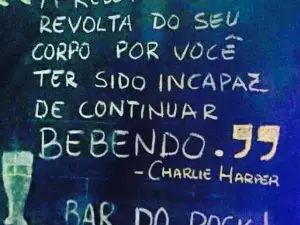 REVOLTA DO SEU
CORPO POR VOCÊ
TER SIDO INCAPAZ
DE CONTINUAR
BEBENDO.”
- CHARLIE HARPER
BAR DO ROCK!